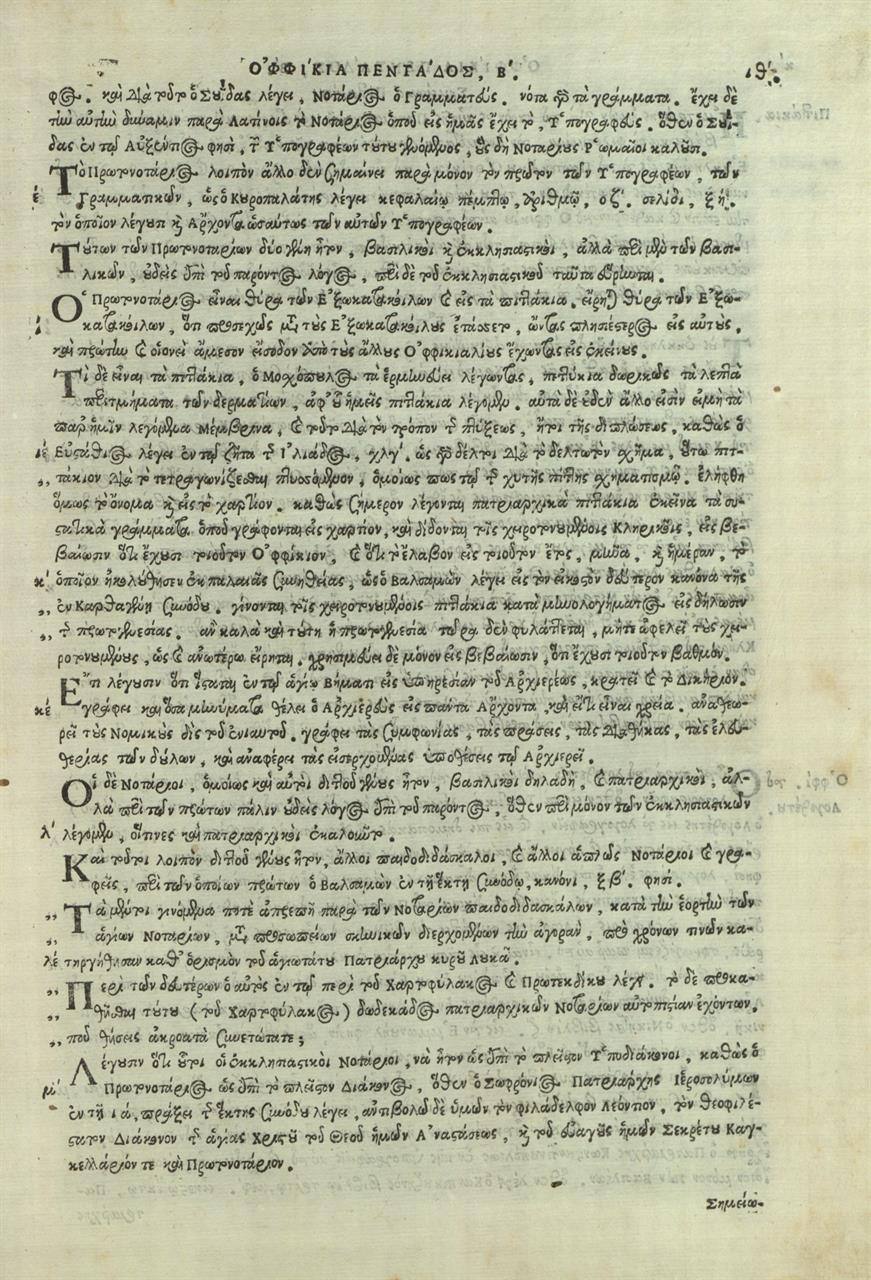 ΟΦΦΙΚΙΑ ΠΕΝΤΑΔΟΣ, Β΄. ιθ΄.
φος. καὶ διὰ τοῦτο ὁ Σουΐδας λέγει, Νοτάριος ὁ Γραμματεύς. νότα γὰρ τὰ γράμματα. ἔχει δὲ
τὴν αὐτὴν δύναμιν παρὰ Λατίνοις τὸ Νοτάριος ὁποῦ εἰς ἡμᾶς ἔχει τὸ, Ὑπογραφεύς. ὅθεν ὁ Σουΐ-
δας ἐν τῷ Αὐξεντιος φησὶ, τῶν Ὑπογραφέων τούτου γενόμενος, οὓς δὴ Νοταρίους Ῥωμαῖοι καλοῦσι.
Τὸ Πρωτονοτάριος λοιπὸν ἄλλο δὲν σημαίνει παρὰ μόνον τὸν πρῶτον τῶν Ὑπογραφέων, τῶν
ε΄ Γραμματικῶν, ὡς ὁ Κυροπαλάτης λέγει κεφαλαίῳ πέμπτῳ, ἀριθμῷ, οζ΄. σελίδι, ξη΄.
τὸν ὁποῖον λέγουσι καὶ Ἄρχοντα ὡσαύτως τῶν αὐτῶν Ὑπογραφέων.
Τούτων τῶν Πρωτονοταρίων δύο γένη ἦτον, βασιλικοὶ καὶ ἐκκλησιαστικοὶ, ἀλλὰ περὶ μὲν τῶν βασι-
λικῶν, οὐδεὶς ἐπὶ τοῦ παρόντος λόγος, περὶ δὲ τοῦ ἐκκλησιαστικοῦ ταῦτα εὑρίσκονται.
Ὁ Πρωτονοτάριος εἶναι θύρα τῶν Ἐξωκατακοίλων καὶ εἰς τὰ πιττάκια. εἴρηται θύρα τῶν Ἐξω-
κατακοίλων, ὅτι προσεχῶς μετὰ τοὺς Ἐξωκατακοίλους ἐτάσσετο, ὤντας πλησιέστερος εἰς αὐτοὺς,
καὶ πρώτην καὶ οἱονεὶ ἄμεσον εἴσοδον ὑπὸ τοὺς ἄλλους Ὀφφικιαλίους ἔχωντας εἰς ἐκείνους.
Τί δὲ εἶναι τὰ πιττάκια, ὁ Μοσχόπουλος τὰ ἑρμηνεύει λέγωντας, πιτύκια δωρικῶς τὰ λεπτὰ
περιτμήματα τῶν δερματίων, ἀφ' οὗ ἡμεῖς πιττάκια λέγομεν. αὐτὰ δὲ οὐδὲν ἄλλο εἰσὶν εἰμὴ τὰ
παρ' ἡμῖν λεγόμενα Μέμβρινα, καὶ τοῦτο διὰ τὸν τρόπον τῆς πτύξεως, ἤτοι τῆς διπλώσεως, καθὼς ὁ
ιε΄ Εὐστάθιος λέγει ἐν τῷ ζῆτα τῆς Ἰλιάδος, χλγ΄. ὡς γὰρ δέλτοι διὰ τὸ δελτωτὸν σχῆμα, οὕτω πιτ-
,, τάκιον διὰ τὸ τετραγωνίζεσθαι πτυσσόμενον, ὁμοίως πως τῷ τῆς χυτῆς πίττης σχηματισμῷ. ἐλήφθη
ὅμως τὸ ὄνομα καὶ εἰς τὸ χαρτίον. καθὼς σήμερον λέγονται πατριαρχικὰ πιττάκια ἐκεῖνα τὰ συ-
στατικὰ γράμματα ὁποῦ γράφονται εἰς χαρτίον, καὶ δίδονται τοῖς χειροτονουμένοις Κληρικοῖς, εἰς βε-
βαίωσιν ὅτι ἔχουσι τοιοῦτον Ὀφφίκιον, καὶ ὅτι τὸ ἔλαβον εἰς τοιοῦτον ἔτος, μῆνα, καὶ ἡμέραν, τὸ
κ΄ ὁποῖον ἠκολούθησεν ἐκ παλαιᾶς συνηθείας, ὡς ὁ Βαλσαμὼν λέγει εἰς τὸν εἰκοστὸν δεύτερον κανόνα τῆς
,, ἐν Καρθαγένῃ Συνόδου. γίνονται τοῖς χειροτονουμένοις πιττάκια κατὰ μηνολογήματος εἰς δήλωσιν
,, τῆς πρωτογενεσίας. ἂν καλὰ καὶ τούτη ἡ πρωτογενεσία τώρα δὲν φυλάττεται, μήτε ὠφελεῖ τοὺς χει-
ροτονουμένους, ὡς καὶ ἀνωτέρω εἴρηται. χρησιμεύει δὲ μόνον εἰς βεβαίωσιν, ὅτι ἔχουσι τοιοῦτον βαθμόν.
Ἔτι λέγουσιν ὅτι ἵσταται ἐν τῷ ἁγίῳ Βήματι εἰς ὑπηρεσίαν τοῦ Ἀρχιερέως, κρατεῖ καὶ τὸ Δικήριον.
κε΄ γράφει καὶ ὅσα μηνύματα θέλει ὁ Ἀρχιερεὺς εἰς πάντα Ἄρχοντα καὶ εἴτι εἶναι χρεία. ἀναθεω-
ρεῖ τοὺς Νομικοὺς δὶς τοῦ ἐνιαυτοῦ. γράφει τὰς Συμφωνίας, τὰς πράσεις, τὰς Διαθήκας, τὰς ἐλευ-
θερίας τῶν δούλων, καὶ ἀναφέρει τὰς εἰσερχομένας ὑποθέσεις τῷ Ἀρχιερεῖ.
Οἱ δὲ Νοτάριοι, ὁμοίως καὶ αὐτοὶ διττοῦ γένους ἦτον, βασιλικοὶ δηλαδὴ, καὶ πατριαρχικοὶ, ἀλ-
λὰ περὶ τῶν πρώτων πάλιν οὐδεὶς λόγος ἐπὶ τοῦ παρόντος, ὅθεν περὶ μόνον τῶν ἐκκλησιαστικῶν
λ΄ λέγομεν, οἵτινες καὶ πατριαρχικοὶ ἐκαλοῦντο.
Καὶ τοῦτοι λοιπὸν διττοῦ γένους ἦτον, ἄλλοι παιδοδιδάσκαλοι, καὶ ἄλλοι ἁπλῶς Νοτάριοι καὶ γρα-
φεῖς, περὶ τῶν ὁποίων πρώτων ὁ Βαλσαμὼν ἐν τῇ ἕκτῃ Συνόδῳ, κανόνι, ξβ΄. φησί.
,, Τὰ μέντοι γινόμενά ποτε ἀπρεπῆ παρὰ τῶν Νοταρίων παιδοδιδασκάλων, κατὰ τὴν ἑορτὴν τῶν
,, ἁγίων Νοταρίων, μετὰ προσωπείων σκηνικῶν διερχομένων τὴν ἀγορὰν, πρὸ χρόνων τινῶν κα-
λε΄ τηργήθησαν καθ' ὁρισμὸν τοῦ ἁγιωτάτου Πατριάρχου κυροῦ Λουκᾶ.
,, Περὶ τῶν δευτέρων ὁ αὐτὸς ἐν τῷ περὶ τοῦ Χαρτοφύλακος καὶ Πρωτεκδίκου λέγει. τὸ δὲ προκα-
,, θῆσθαι τούτου (τοῦ Χαρτοφύλακος) δωδεκάδος πατριαρχικῶν Νοταρίων αὐτοπτείαν ἐχόντων,
,, ποῦ θήσεις ἀκροατὰ συνετώτατε;
Λέγουσιν ὅτι οὗτοι οἱ ἐκκλησιαστικοὶ Νοτάριοι, νὰ ἦτον ὡς ἐπὶ τὸ πλεῖστον Ὑποδιάκονοι, καθὼς ὁ
μ΄ Πρωτονοτάριος ὡς ἐπὶ τὸ πλεῖστον Διάκονος, ὅθεν ὁ Σωφρόνιος Πατριάρχης Ἱεροσολύμων
ἐν τῇ ιά, πράξει τῆς ἕκτης Συνόδου λέγει, ἀντιβολῶ δὲ ὑμῶν τὸν φιλάδελφον Λεόντιον, τὸν θεοφιλέ-
στατον Διάκονον τῆς ἁγίας Χριστοῦ τοῦ Θεοῦ ἡμῶν Ἀναστάσεως, καὶ τοῦ εὐαγοῦς ἡμῶν Σεκρέτου Καγ-
κελλάριόν τε καὶ Πρωτονοτάριον.
Σημείω-